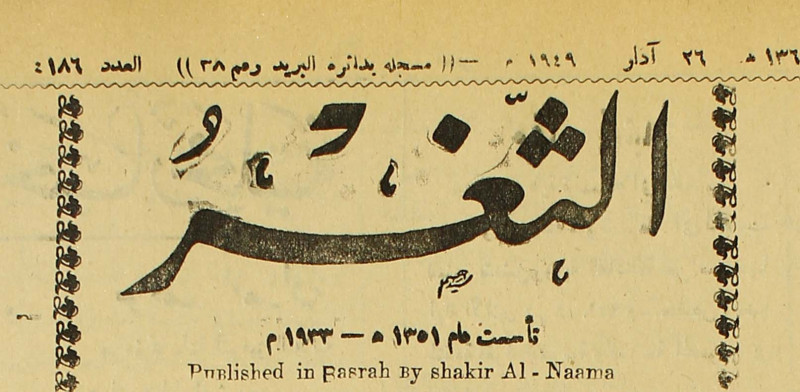 ١٣٦ هـ ٢٦ آذار ١٩٤٩ م — (( مسجله بدائره البريد رقم ٣٨ )) العدد ٤١٨٦
الثَّغْرُ
تأسست عام ١٣٥١ ه — ١٩٣٣ م
Published in Basrah By shakir Al - Naama